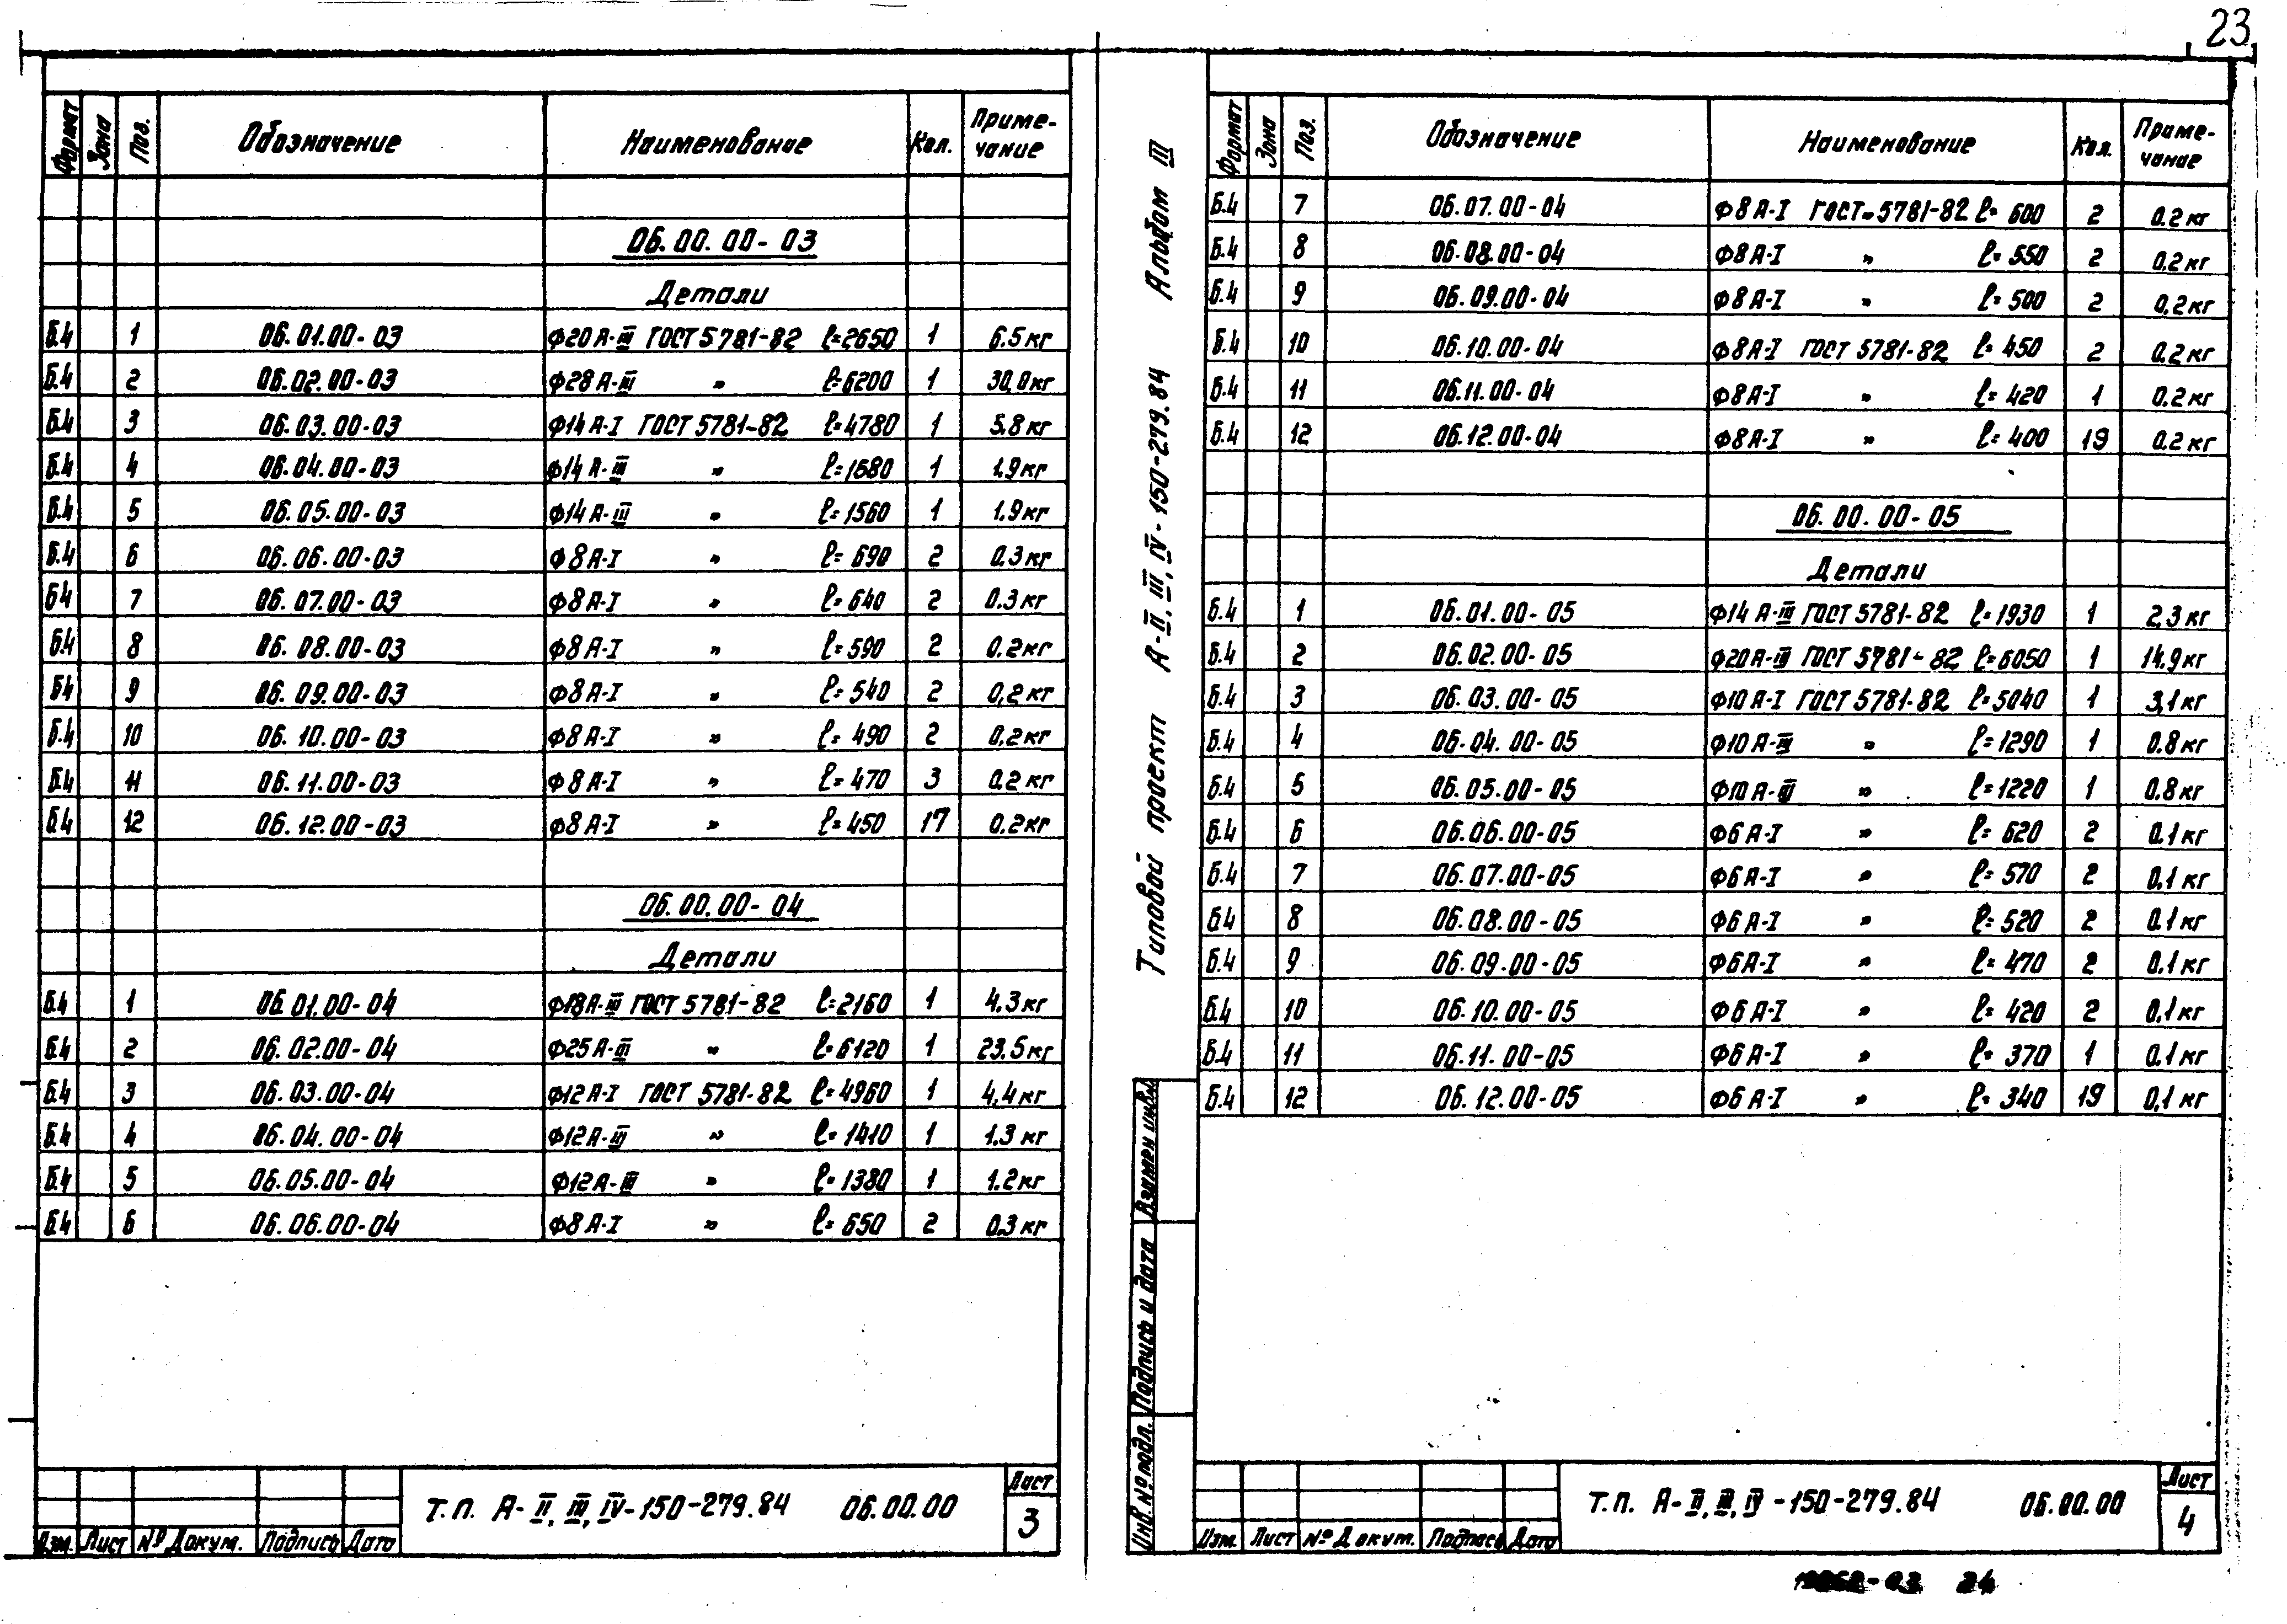 23
Формат Зона Поз. Обозначение Наименование Кол. Приме-
чание
06.00.00-03
Детали
Б.4 1 06.01.00-03 Ф20 А-III ГОСТ 5781-82 ℓ=2650 1 6.5 кг
Б.4 2 06.02.00-03 Ф28 А-III " ℓ=6200 1 30,0 кг
Б.4 3 06.03.00-03 Ф14 А-I ГОСТ 5781-82 ℓ=4780 1 5,8 кг
Б.4 4 06.04.00-03 Ф14 А-III " ℓ=1580 1 1,9 кг
Б.4 5 06.05.00-03 Ф14 А-III " ℓ=1560 1 1,9 кг
Б.4 6 06.06.00-03 Ф8 А-I " ℓ=690 2 0.3 кг
Б4 7 06.07.00-03 Ф8 А-I " ℓ=640 2 0.3 кг
Б.4 8 06.08.00-03 Ф8 А-I " ℓ=590 2 0.2 кг
Б4 9 06.09.00-03 Ф8 А-I " ℓ=540 2 0,2 кг
Б.4 10 06.10.00-03 Ф8 А-I " ℓ=490 2 0,2 кг
Б.4 11 06.11.00-03 Ф8 А-I " ℓ=470 3 0.2 кг
Б.4 12 06.12.00-03 Ф8 А-I " ℓ=450 17 0,2 кг
06.00.00-04
Детали
Б.4 1 06.01.00-04 Ф18 А-III ГОСТ 5781-82 ℓ=2160 1 4.3 кг
Б.4 2 06.02.00-04 Ф25 А-III " ℓ=6120 1 23.5 кг
Б.4 3 06.03.00-04 Ф12 А-I ГОСТ 5781-82 ℓ=4960 1 4,4 кг
Б.4 4 06.04.00-04 Ф12 А-III " ℓ=1410 1 1.3 кг
Б.4 5 06.05.00-04 Ф12 А-III " ℓ=1380 1 1.2 кг
Б.4 6 06.06.00-04 Ф8 А-I " ℓ=650 2 0,3 кг
Изм. Лист № Докум. Подпись Дата
Т.П. А-II, III, IV-150-279.84 06.00.00
Лист
3
Типовой проект А-II, III, IV-150-279.84 Альбом III
Формат Зона Поз. Обозначение Наименование Кол. Приме-
чание
Б.4 7 06.07.00-04 Ф8 А-I ГОСТ 5781-82 ℓ=600 2 0.2 кг
Б.4 8 06.08.00-04 Ф8 А-I " ℓ=550 2 0,2 кг
Б.4 9 06.09.00-04 Ф8 А-I " ℓ=500 2 0,2 кг
Б.4 10 06.10.00-04 Ф8 А-I ГОСТ 5781-82 ℓ=450 2 0.2 кг
Б.4 11 06.11.00-04 Ф8 А-I " ℓ=420 1 0.2 кг
Б.4 12 06.12.00-04 Ф8 А-I " ℓ=400 19 0.2 кг
06.00.00-05
Детали
Б.4 1 06.01.00-05 Ф14 А-III ГОСТ 5781-82 ℓ=1930 1 2,3 кг
Б.4 2 06.02.00-05 Ф20 А-III ГОСТ 5781-82 ℓ=6050 1 14,9 кг
Б.4 3 06.03.00-05 Ф10 А-I ГОСТ 5781-82 ℓ=5040 1 3,1 кг
Б.4 4 06.04.00-05 Ф10 А-III " ℓ=1290 1 0.8 кг
Б.4 5 06.05.00-05 Ф10 А-III " ℓ=1220 1 0,8 кг
Б.4 6 06.06.00-05 Ф6 А-I " ℓ=620 2 0,1 кг
Б.4 7 06.07.00-05 Ф6 А-I " ℓ=570 2 0,1 кг
Б.4 8 06.08.00-05 Ф6 А-I " ℓ=520 2 0.1 кг
Б.4 9 06.09.00-05 Ф6 А-I " ℓ=470 2 0.1 кг
Б.4 10 06.10.00-05 Ф6 А-I " ℓ=420 2 0,1 кг
Б.4 11 06.11.00-05 Ф6 А-I " ℓ=370 1 0.1 кг
Б.4 12 06.12.00-05 Ф6 А-I " ℓ=340 19 0,1 кг
Инв. № подл. Подпись и дата Взамен инв.
Изм. Лист № Докум. Подпись Дата
Т.П. А-II, III, IV-150-279.84 06.00.00
Лист
4
24